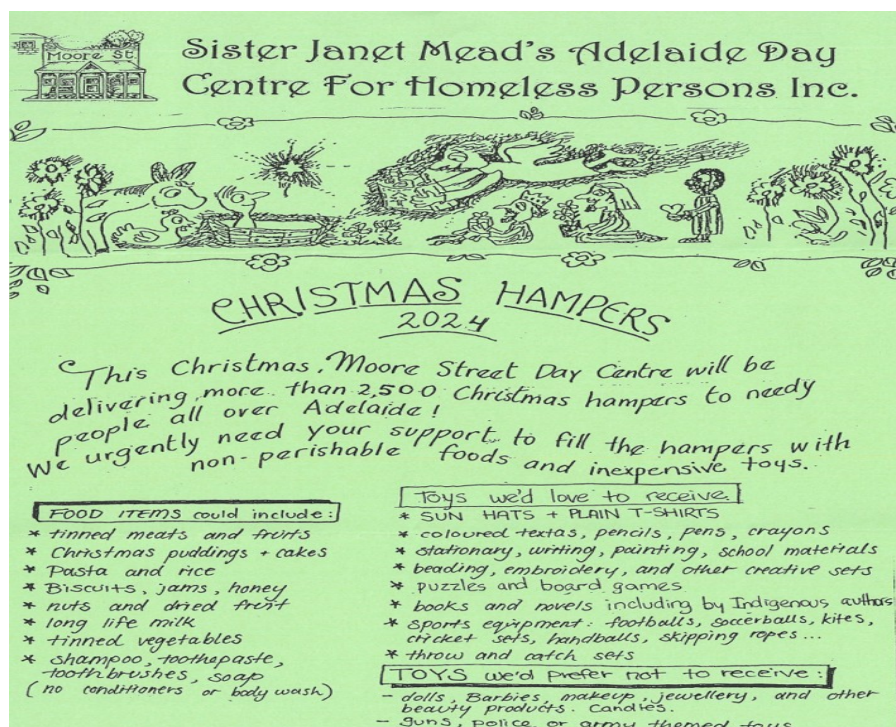 Moore St
Sister Janet Mead's Adelaide Day
Centre For Homeless Persons Inc.
CHRISTMAS HAMPERS
2024
This Christmas, Moore Street Day Centre will be
delivering more than 2,500 Christmas hampers to needy
people all over Adelaide!
We urgently need your support to fill the hampers with
non-perishable foods and inexpensive toys.
FOOD ITEMS could include:
* tinned meats and fruits
* Christmas puddings + cakes
* Pasta and rice
* Biscuits, jams, honey
* nuts and dried fruit
* long life milk
* tinned vegetables
* shampoo, toothepaste,
toothbrushes, soap
(no conditioners or body wash)
Toys we'd love to receive:
* SUN HATS + PLAIN T-SHIRTS
* coloured textas, pencils, pens, crayons
* stationary, writing, painting, school materials
* beading, embroidery, and other creative sets
* puzzles and board games
* books and novels including by Indigenous authors
* sports equipment: footballs, soccerballs, kites,
cricket sets, handballs, skipping ropes...
* throw and catch sets
TOYS we'd prefer not to receive:
- dolls, Barbies, makeup, jewellery, and other
beauty products. Candies.
- guns, police or army themed toys